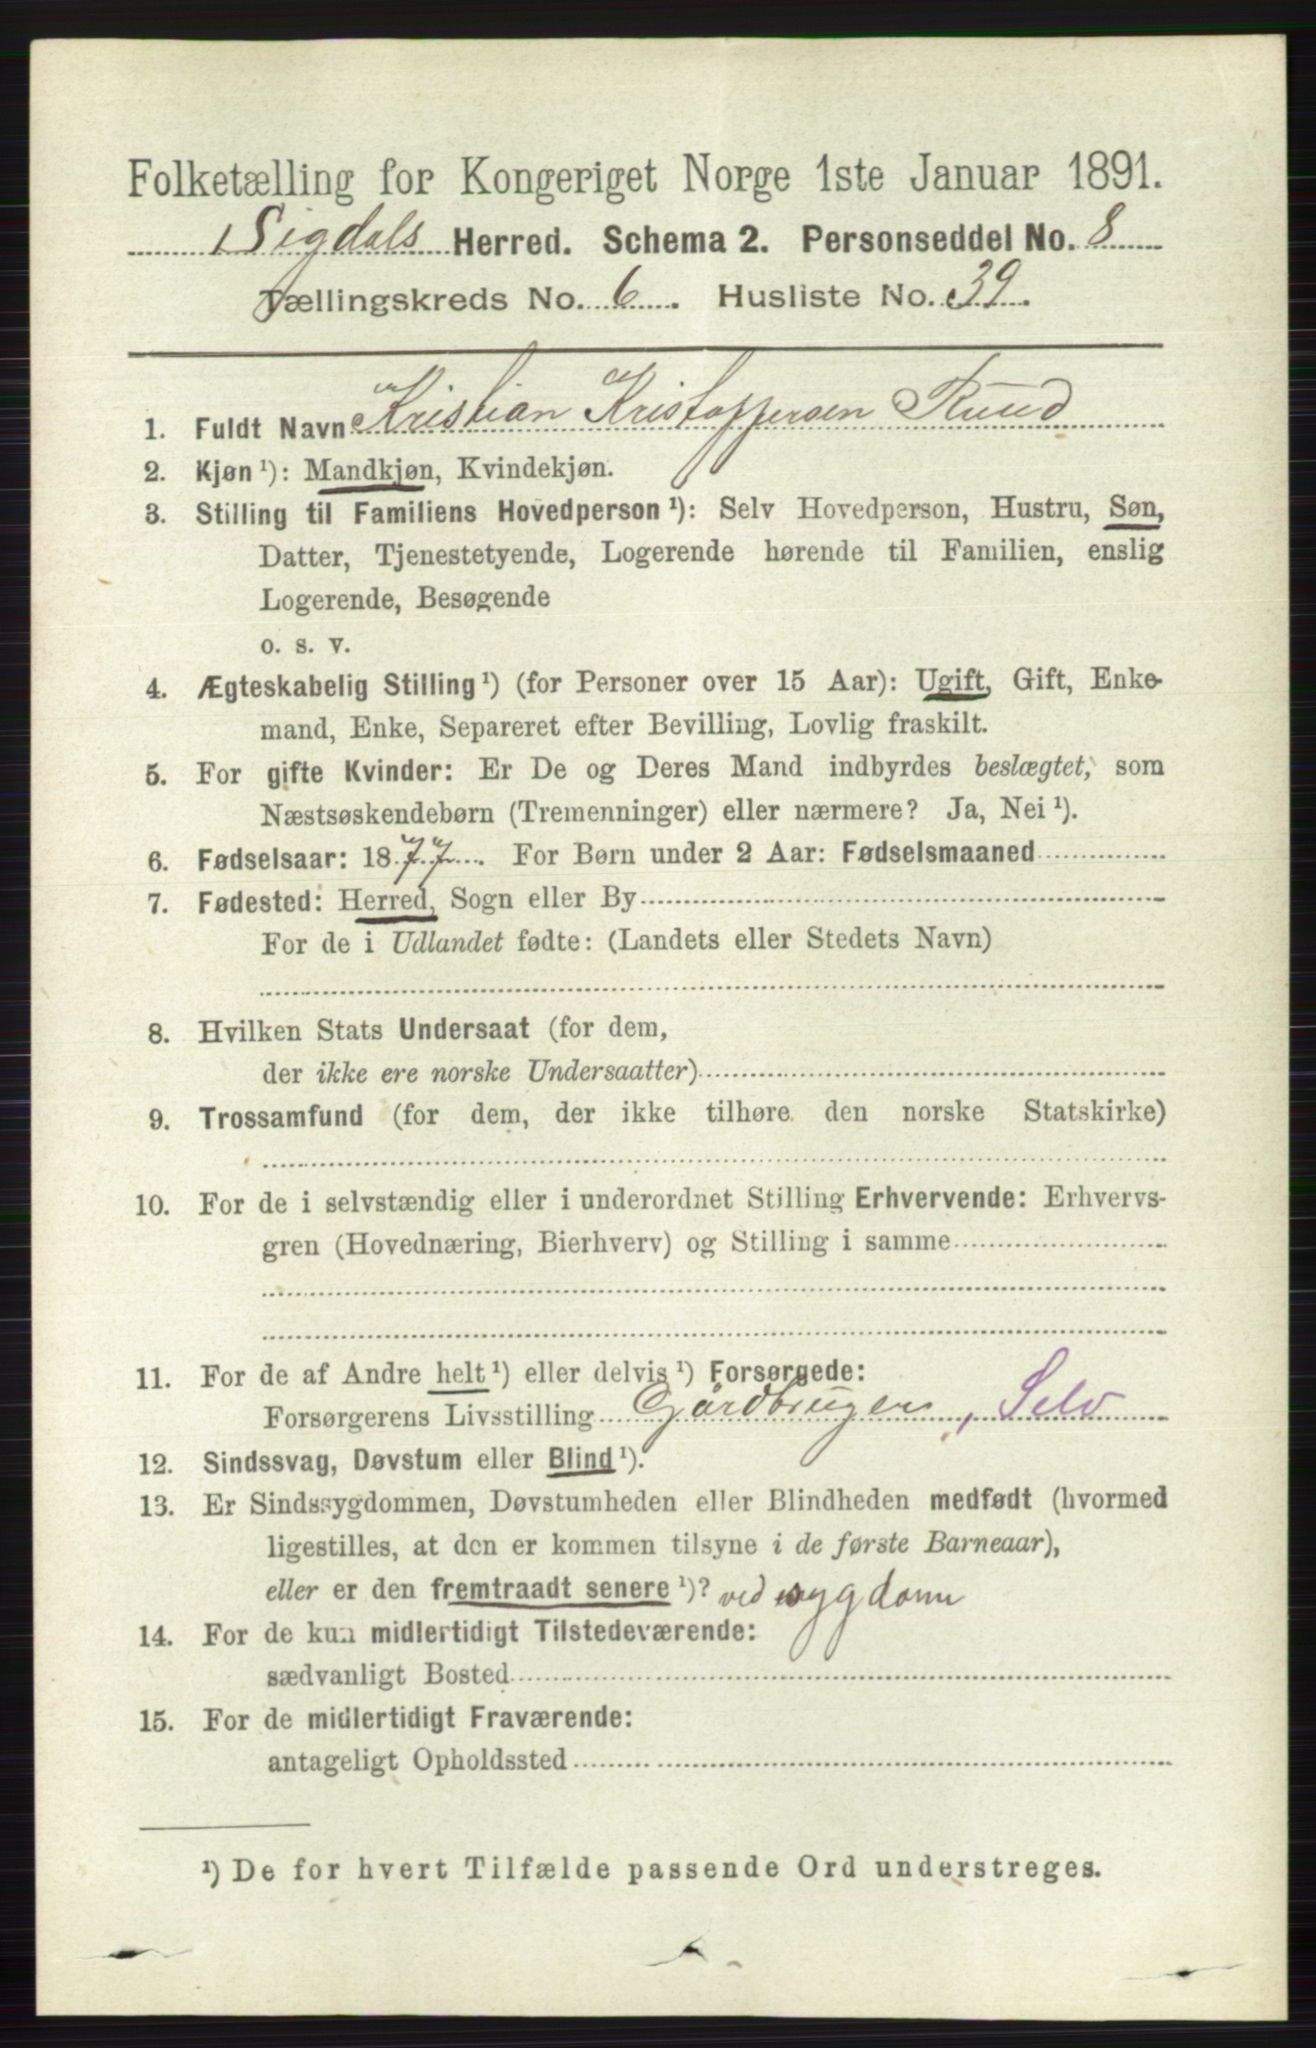 Folketælling for Kongeriget Norge 1ste Januar 1891.
Sigdals Herred. Schema 2. Personseddel No. 8
Tællingskreds No. 6. Husliste No. 39.
1. Fuldt Navn Kristian Kristoffersen Ruud
2. Kjøn ¹): Mandkjøn, Kvindekjøn.
3. Stilling til Familiens Hovedperson ¹): Selv Hovedperson, Hustru, Søn,
Datter, Tjenestetyende, Logerende hørende til Familien, enslig
Logerende, Besøgende
o. s. v.
4. Ægteskabelig Stilling ¹) (for Personer over 15 Aar): Ugift, Gift, Enke-
mand, Enke, Separeret efter Bevilling, Lovlig fraskilt.
5. For gifte Kvinder: Er De og Deres Mand indbyrdes beslægtet, som
Næstsøskendebørn (Tremenninger) eller nærmere? Ja, Nei ¹).
6. Fødselsaar: 1877. For Børn under 2 Aar: Fødselsmaaned
7. Fødested: Herred, Sogn eller By
For de i Udlandet fødte: (Landets eller Stedets Navn)
8. Hvilken Stats Undersaat (for dem,
der ikke ere norske Undersaatter)
9. Trossamfund (for dem, der ikke tilhøre den norske Statskirke)
10. For de i selvstændig eller i underordnet Stilling Erhvervende: Erhvervs-
gren (Hovednæring, Bierhverv) og Stilling i samme
11. For de af Andre helt ¹) eller delvis ¹) Forsørgede:
Forsørgerens Livsstilling Gårdbruger, Selv
12. Sindssvag, Døvstum eller Blind ¹).
13. Er Sindssygdommen, Døvstumheden eller Blindheden medfødt (hvormed
ligestilles, at den er kommen tilsyne i de første Barneaar),
eller er den fremtraadt senere ¹)? ved sygdom
14. For de kun midlertidigt Tilstedeværende:
sædvanligt Bosted
15. For de midlertidigt Fraværende:
antageligt Opholdssted
¹) De for hvert Tilfælde passende Ord understreges.